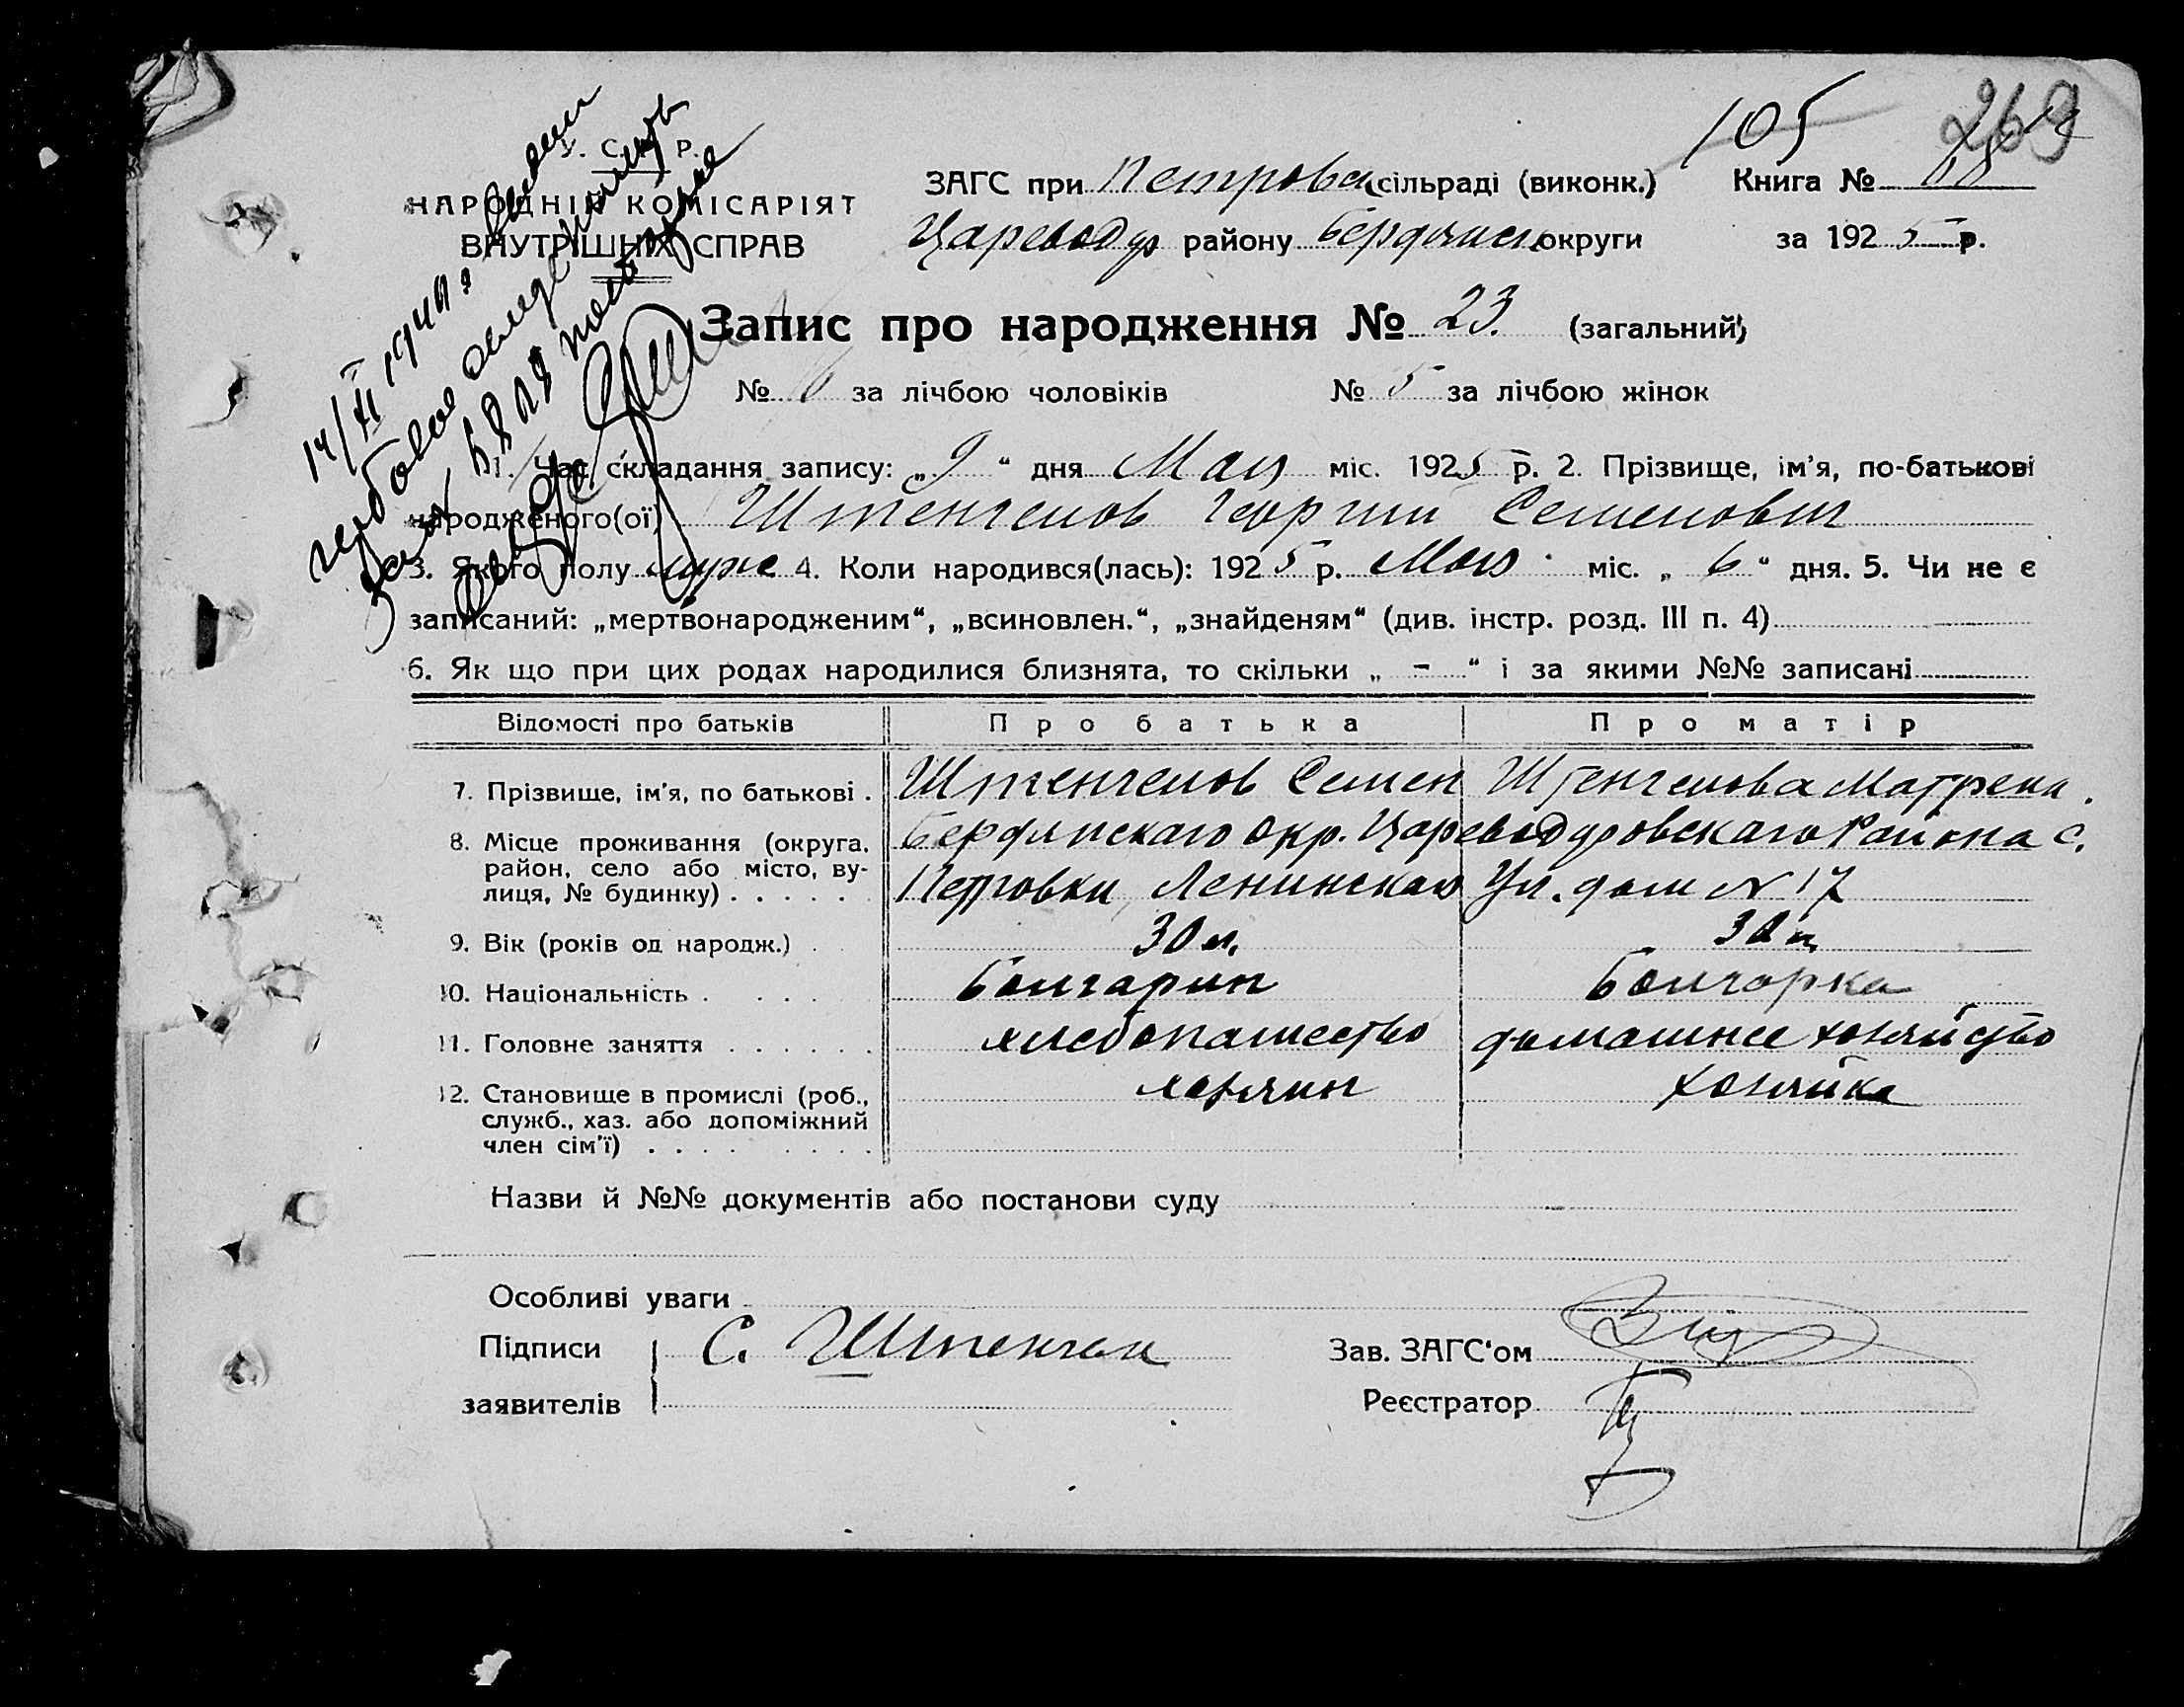 105
269
У. С. Р. Р.
НАРОДНІЙ КОМІСАРІЯТ
ВНУТРІШНІХ СПРАВ
ЗАГС при Петровск сільраді (виконк.) Книга №
Цареводар району Бердянск округи за 1925 р.
Запис про народження № 23. (загальний)
№ за лічбою чоловіків № 5 за лічбою жінок
1. Час складання запису: „9“ дня Мая міс. 1925 р. 2. Прізвище, ім'я, по-батькові
народженого(ої) Штенгелов Георгий Семенович
3. Якого полу муже 4. Коли народився(лась): 1925 р. Мая міс. „6“ дня. 5. Чи не є
записаний: „мертвонародженим“, „всиновлен.“, „знайденям“ (див. інстр. розд. III п. 4)
6. Як що при цих родах народилися близнята, то скільки „ - “ і за якими №№ записані
Відомості про батьків Про батька Про матір
7. Прізвище, ім'я, по батькові . Штенгелов Семен Штенгелова Матрена.
8. Місце проживання (округа, район, село або місто, вулиця, № будинку) Бердянскаго окр. Района с.
Петровки, Ленинская Ул. дом N 17
9. Вік (років од народж.) 30 л.
10. Національність Болгарин Болгарка
11. Головне заняття хлебопашество домашнее хозяйство
12. Становище в промислі (роб., служб., хаз. або допоміжний член сім'ї) хозяин хозяйка
Назви й №№ документів або постанови суду
Особливі уваги
Підписи заявителів С. Штенгел
Зав. ЗАГС'ом
Реєстратор